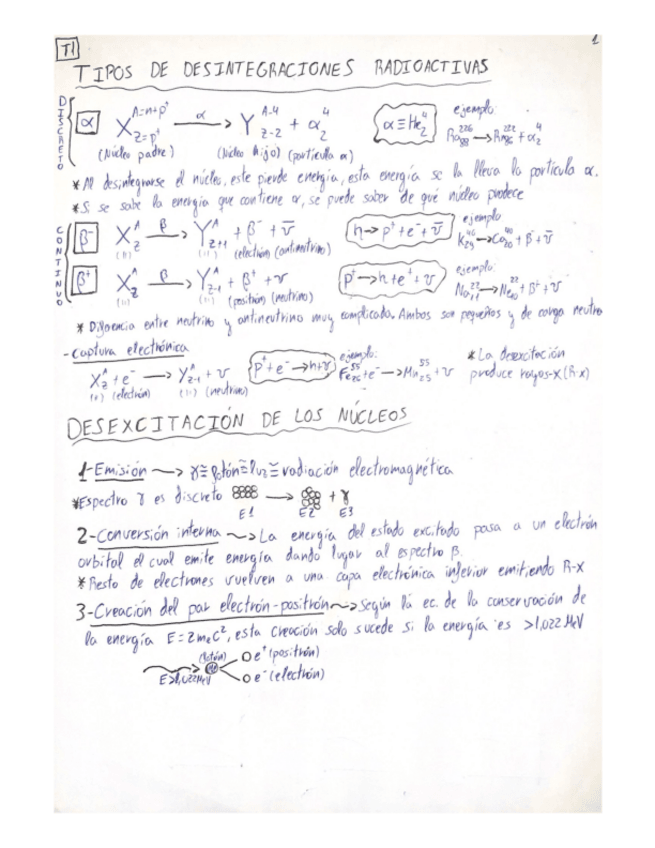 T1
1
TIPOS DE DESINTEGRACIONES RADIOACTIVAS
DISCRETO
α X A=n+p⁺ Z=p⁺ —α→ Y A-4 Z-2 + α 4 2 α ≡ He 4 2 ejemplo: Ra 226 88 → Rn 222 86 + α 4 2
(Núcleo padre) (Núcleo hijo) (partícula α)
* Al desintegrarse el núcleo, este pierde energía, esta energía se la lleva la partícula α.
* Si se sabe la energía que contiene α, se puede saber de qué núcleo procede
CONTINUO
β⁻ X A Z —β→ Y A Z+1 + β⁻ + ν̅ n → p⁺ + e⁻ + ν̅ ejemplo K 40 19 → Ca 40 20 + β⁻ + ν̅
(11) (11) (electrón) (antineutrino)
β⁺ X A Z —β→ Y A Z-1 + β⁺ + ν p⁺ → n + e⁺ + ν ejemplo: Na 22 11 → Ne 22 10 + β⁺ + ν
(11) (11) (positrón) (neutrino)
* Diferencia entre neutrino y antineutrino muy complicada. Ambos son pequeños y de carga neutra
- Captura electrónica
X A Z + e⁻ → Y A Z-1 + ν p⁺ + e⁻ → n + ν ejemplo: Fe 55 26 + e⁻ → Mn 55 25 + ν * La desexcitación
(11) (electrón) (11) (neutrino) produce rayos-X (R-x)
DESEXCITACIÓN DE LOS NÚCLEOS
1-Emisión ~> γ ≅ fotón ≅ luz ≅ radiación electromagnética
* Espectro γ es discreto → + γ
E1 E2 E3
2-Conversión interna ~> La energía del estado excitado pasa a un electrón
orbital el cual emite energía dando lugar al espectro β.
* Resto de electrones vuelven a una capa electrónica inferior emitiendo R-X
3-Creación del par electrón-positrón ~> Según la ec. de la conservación de
la energía E=2meC², esta creación solo sucede si la energía es >1,022 MeV
(fotón) e⁺ (positrón)
E>1,022MeV e⁻ (electrón)